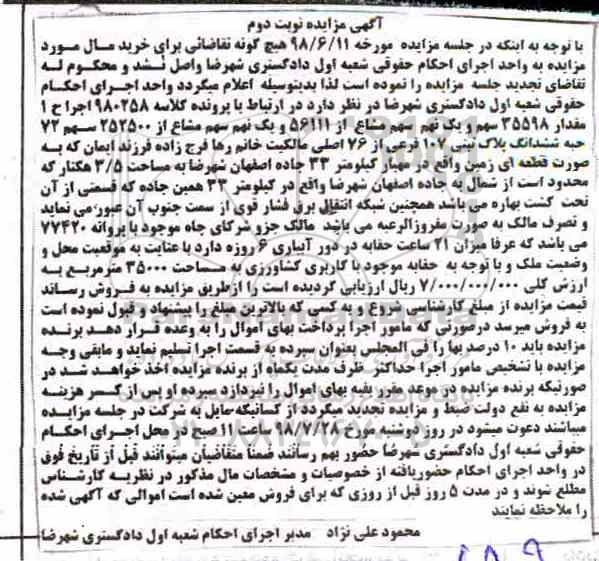 آگهی مزایده نوبت دوم
با توجه به اینکه در جلسه مزایده مورخه ۹۸/۶/۱۱ هیچ گونه تقاضائی برای خرید مال مورد
مزایده به واحد اجرای احکام حقوقی شعبه اول دادگستری شهرضا واصل نشد و محکوم له
تقاضای تجدید جلسه مزایده را نموده است لذا بدینوسیله اعلام میگردد واحد اجرای احکام
حقوقی شعبه اول دادگستری شهرضا در نظر دارد در ارتباط با پرونده کلاسه ۹۸۰۲۵۸ اجرا ح ۱
مقدار ۳۵۵۹۸ سهم و یک نهم سهم مشاع از ۵۶۱۱۱ و یک نهم سهم مشاع از ۲۵۲۵۰۰ سهم ۷۲
حبه ششدانگ پلاک ثبتی ۱۰۷ فرعی از ۲۶ اصلی مالکیت خانم رها فرج زاده فرزند ایمان که به
صورت قطعه ای زمین واقع در مهیار کیلومتر ۳۳ جاده اصفهان شهرضا به مساحت ۳/۵ هکتار که
محدود است از شمال به جاده اصفهان شهرضا واقع در کیلومتر ۳۳ همین جاده که قسمتی از آن
تحت کشت بهاره می باشد همچنین شبکه انتقال برق فشار قوی از سمت جنوب آن عبور می نماید
و تصرف مالک به صورت مفروزالرعیه می باشد مالک جزو شرکای چاه موجود با پروانه ۷۷۴۲۰
می باشد که عرفا میزان ۲۱ ساعت حقابه در دور آبیاری ۶ روزه دارد با عنایت به موقعیت محل و
وضعیت ملک و با توجه به حقابه موجود با کاربری کشاورزی به مساحت ۳۵۰۰۰ مترمربع به
ارزش کلی ۷/۰۰۰/۰۰۰/۰۰۰ ریال ارزیابی گردیده است را از طریق مزایده به فروش رساند
قیمت مزایده از مبلغ کارشناسی شروع و به کسی که بالاترین مبلغ را پیشنهاد و قبول نموده است
به فروش میرسد درصورتی که مامور اجرا پرداخت بهای اموال را به وعده قرار دهد برنده
مزایده باید ۱۰ درصد بها را فی المجلس بعنوان سپرده به قسمت اجرا تسلیم نماید و مابقی وجه
مزایده با تشخیص مامور اجرا حداکثر ظرف مدت یکماه از برنده مزایده اخذ خواهد شد در
صورتیکه برنده مزایده در موعد مقرر بقیه بهای اموال را نپردازد سپرده او پس از کسر هزینه
مزایده به نفع دولت ضبط و مزایده تجدید میگردد از کسانیکه مایل به شرکت در جلسه مزایده
میباشند دعوت میشود در روز دوشنبه مورخ ۹۸/۷/۲۸ ساعت ۱۱ صبح در محل اجرای احکام
حقوقی شعبه اول دادگستری شهرضا حضور بهم رسانند ضمنا متقاضیان میتوانند قبل از تاریخ فوق
در واحد اجرای احکام حضوریافته از خصوصیات و مشخصات مال مذکور در نظریه کارشناس
مطلع شوند و در مدت ۵ روز قبل از روزی که برای فروش معین شده است اموالی که آگهی شده
را ملاحظه نمایند
محمود علی نژاد مدیر اجرای احکام شعبه اول دادگستری شهرضا